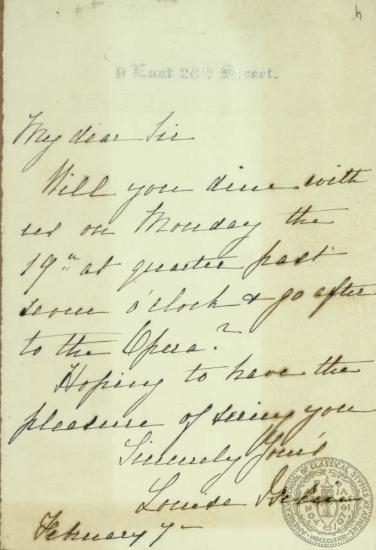 9 East 26th Street.
My dear Sir
Will you dine with
us on Monday the
19th at quarter past
seven o'clock & go after
to the Opera?
Hoping to have the
pleasure of seeing you
Sincerely Yours
Louise
February 7th